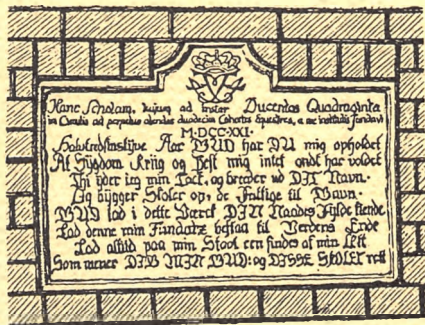 Hanc Scholam, hujus ad instar Ducentas Quadraginta
in Circulis ad perpetuo alendas duodecim Cohortes Equestres, a me institutis fundavi
M·DCC·XXI·
Halvtredsinstyve Aar GUD har DU mig opholdet
At Sygdom Kriig og Pest mig intet ondt har voldet
Thi yder jeg min Tack, og breeder ud DIT Navn.
Og bygger Skoler op, de Fattige til Gavn.
GUD lad i dette Værck DIN Naades Fylde kiende
Lad denne min Fundatz bestaa til Verdens Ende
Lad altid paa min Stool een findes af min Ætt
Som mener DIG MIN GUD: og DISSE SKOLER rett